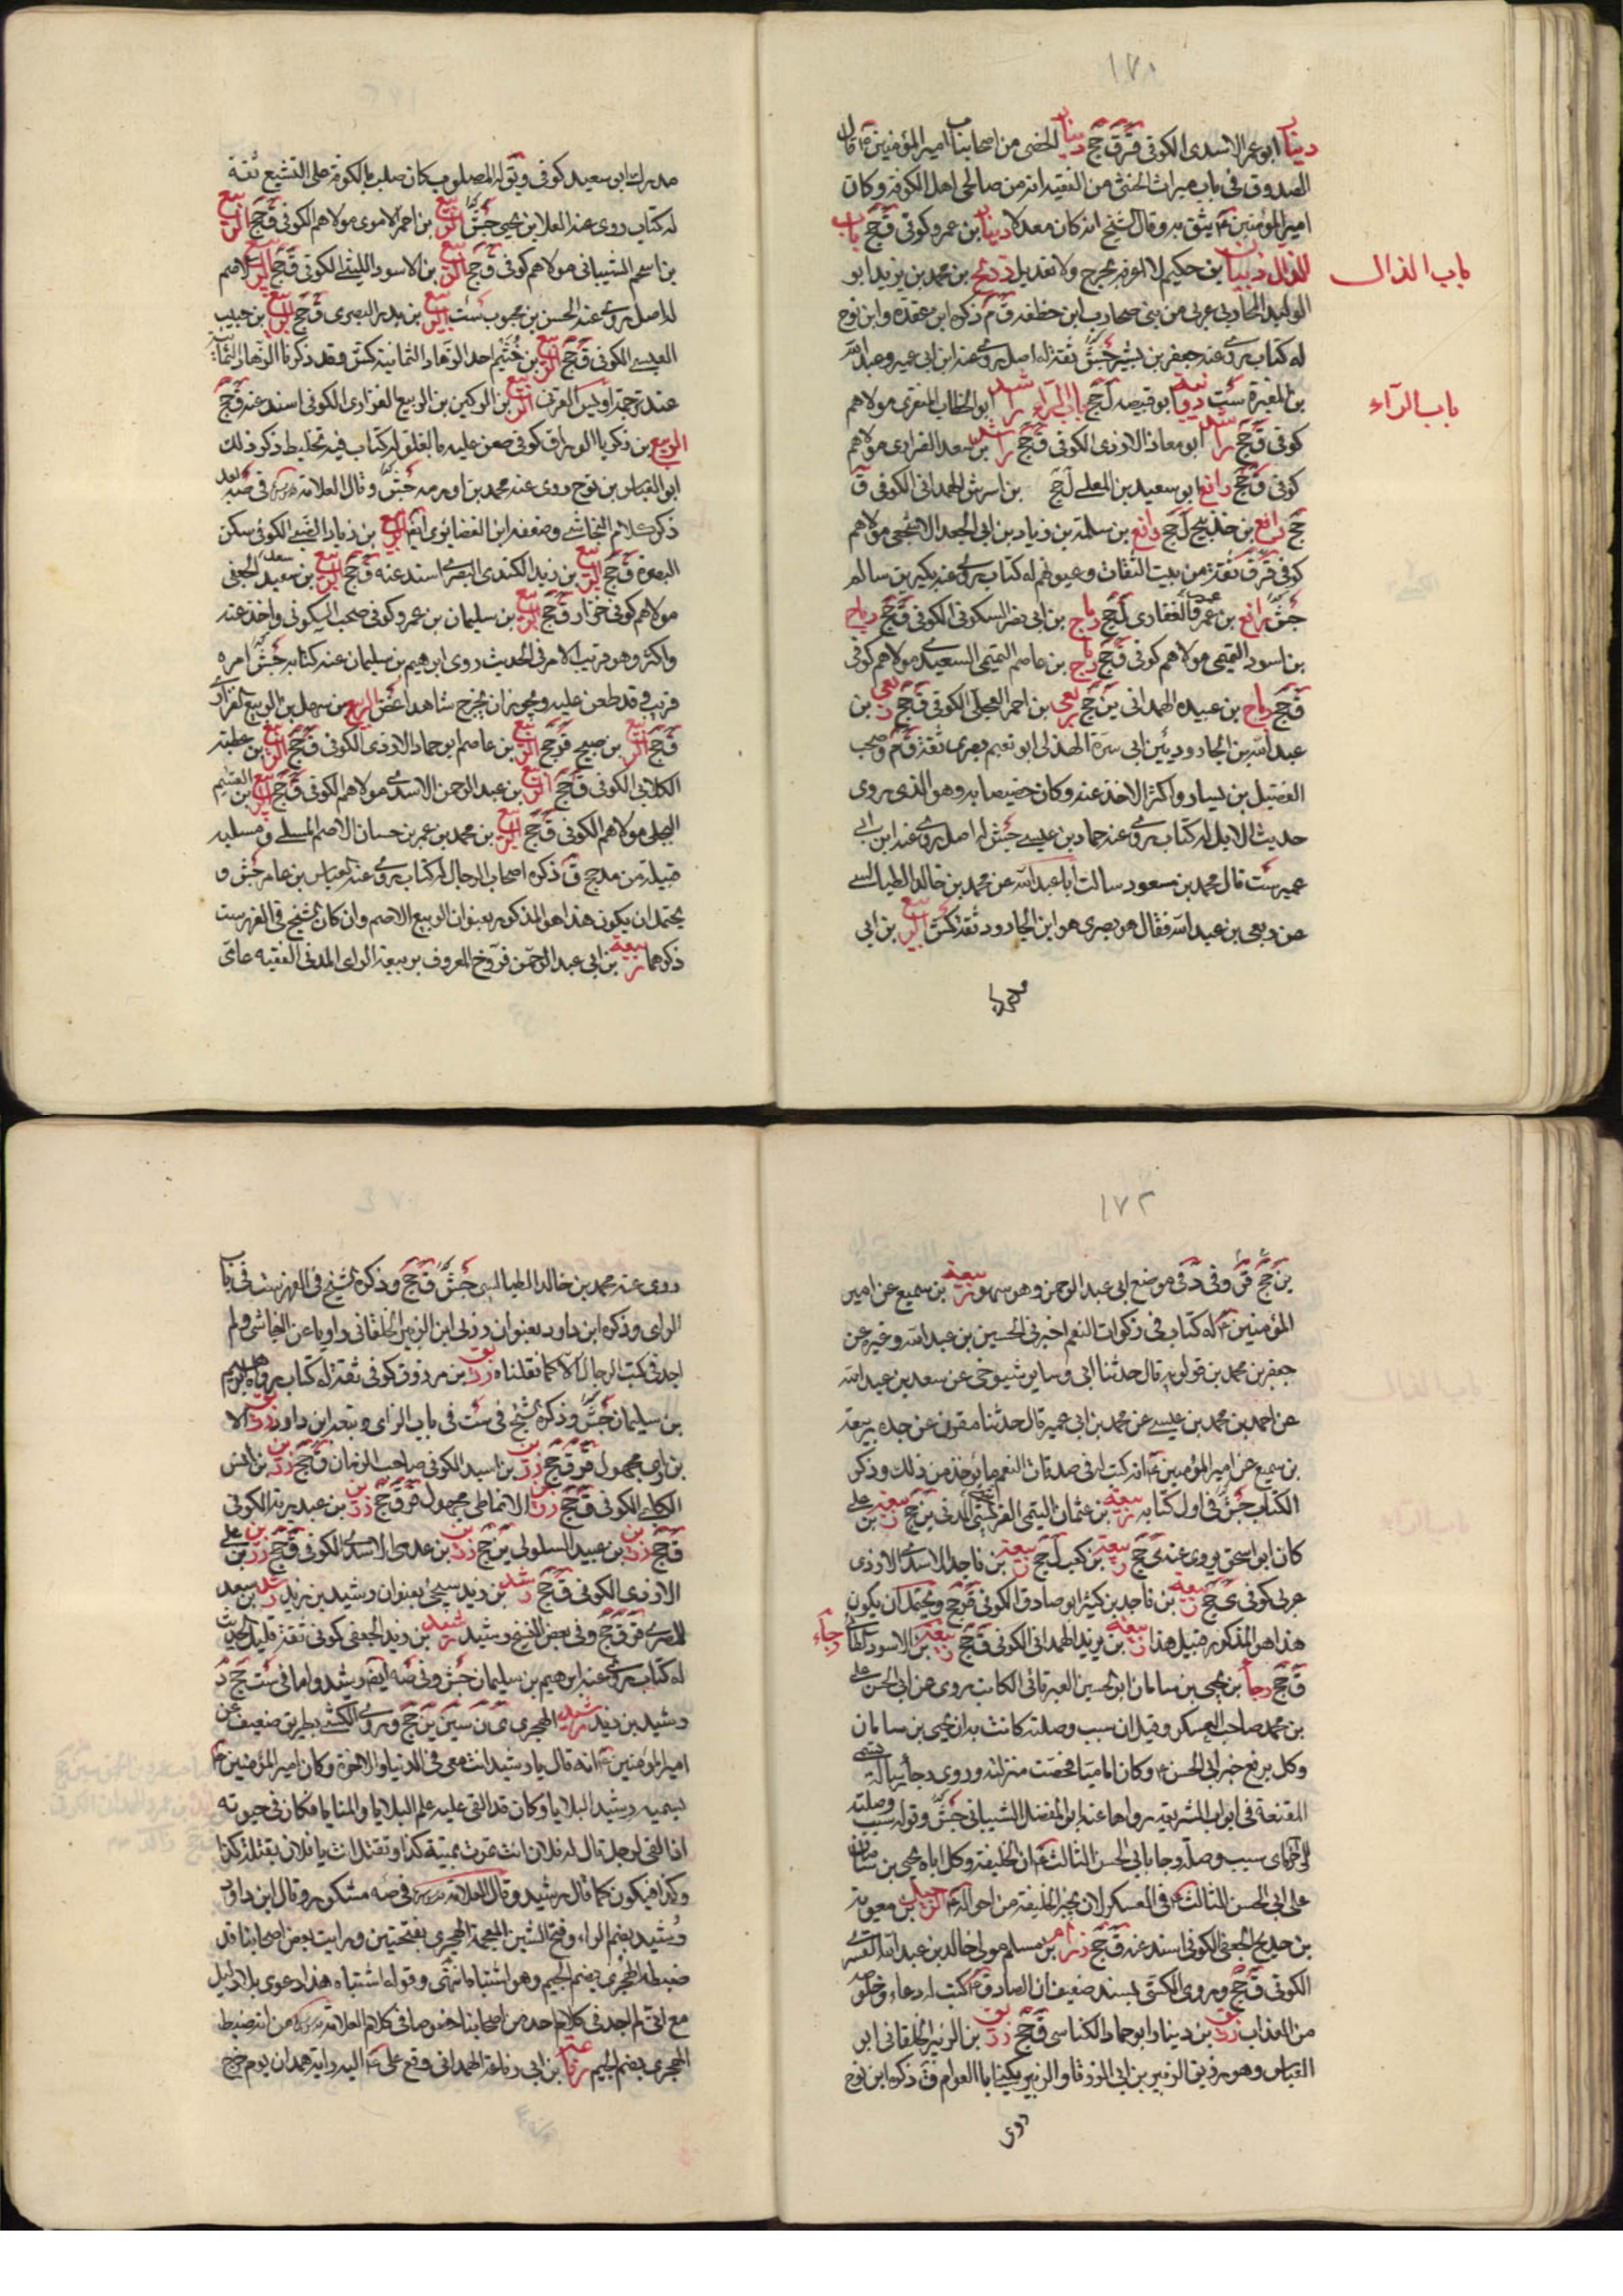 ١٧١
دينار ابو عمر الاسدى الكوفى ق ق جخ دينار الخصى من اصحابنا امير المؤمنين ع قال
الصدوق فى باب ميراث الخنثى من الفقيه انه من صالحى اهل الكوفة وكان
امير المؤمنين ع يثق به وقال الشيخ انه كان معدلا دينار بن عمرو كوفى ق جخ باب
الذال ذبيان بن حكيم لا اعرفه بجرح ولا تعديل ذريح بن محمد بن يزيد ابو
باب الذال
الوليد المحاربى عربى من بنى محارب ابن خصفة ق م ذكره ابن عقدة وابن نوح
له كتاب روى عنه جعفر بن بشير جش ثقة له اصل روى عنه ابن ابى عمير وعبد الله
بن المغيرة ست ذويب ابو قبيصه ل جخ باب الراء راشد ابو الخطاب المنقرى مولاهم
باب الرآء
كوفى ق جخ راشد ابو معاذ الازدى الكوفى ق جخ راشد بن سعد الفزارى مولاهم
كوفى ق جخ رافع ابو سعيد بن المعلى ل جخ بن اشرس الهمدانى الكوفى ق
جخ رافع بن خديج ل جخ رافع بن سلمة بن زياد بن ابى الجعد الاشجعى مولاهم
كوفى ق ثقة من بيت الثقات وعيونهم له كتاب روى عنه بكير بن سالم
جش رافع بن عمرو الغفارى ل جخ رباح بن ابى نصر السكونى الكوفى ق جخ رباح
بن اسود التميمى مولاهم كوفى ق جخ رباح بن عاصم التميمى السعيدى مولاهم كوفى
ق جخ رباح بن عبيده الهمدانى ين جخ ربعى بن احمر العجلى الكوفى ق جخ ربعى بن
عبد الله بن الجارود بن ابى سبرة الهذلى ابو نعيم بصرى ثقة ق م وصحب
الفضيل بن يسار واكثر الاخذ عنه وكان خصيصا به وهو الذى روى
حديث الابل له كتاب روى عنه حماد بن عيسى جش له اصل روى عنه ابن ابى
عمير ست قال محمد بن مسعود سالت ابا عبد الله عن محمد بن خالد الطيالسى
عن ربعى بن عبد الله فقال هو بصرى هو ابن الجارود ثقة كش الربيع بن ابى
مدرك
مدرك ابى سعيد كوفى ويقو له المصلوب كان صلب بالكوفة على التشيع ثقة
له كتاب روى عنه العلا بن يحيى جش الربيع بن احمر الاموى مولاهم الكوفى ق جخ الربيع
بن اسحم الشيبانى مولاهم كوفى ق جخ الربيع بن الاسود الليثى الكوفى ق جخ الربيع الاصم
له اصل روى عنه الحسن بن محبوب ست الربيع بن بدر البصرى ق جخ الربيع بن حبيب
العبسى الكوفى ق جخ الربيع بن خثيم احد الزهاد الثمانية كش وقد ذكرنا الزهاد الثمانية
عند ترجمة اويس القرنى الربيع بن الركين بن الربيع الفزارى الكوفى اسند عنه ق جخ
الربيع بن زكريا الوراق كوفى طعن عليه بالغلو له كتاب فيه تخليط ذكر ذلك
ابو العباس بن نوح روى عنه محمد بن اورمه جش وقال العلامة فى صه بعد
ذكر كلام النجاشى وضعفه ابن الغضائرى ايضا الربيع بن زياد الضبى الكوفى سكن
البصرة ق جخ الربيع بن زيد الكندى البصرى اسند عنه ق جخ الربيع بن سعيد الجعفى
مولاهم كوفى خزاز ق جخ الربيع بن سليمان بن عمرو كوفى صحب السكونى واخذ عنه
واكثر وهو قريب الامر فى الحديث روى ابرهيم بن سليمان عنه كتابه جش امره
قريب قد طعن عليه ويجوز ان يخرج شاهدا غض الربيع بن سهل بن الربيع الفزارى
ق جخ الربيع بن صبيح ق جخ الربيع بن عاصم ابو حماد الازدى الكوفى ق جخ الربيع بن عطية
الكلابى الكوفى ق جخ الربيع بن عبد الرحمن الاسدى مولاهم الكوفى ق جخ الربيع بن القسيم
البجلى مولاهم الكوفى ق جخ الربيع بن محمد بن عمر بن حسان الاصم المسلى ومسلية
قبيلة من مذحج ق ذكره اصحاب الرجال له كتاب روى عنه العباس بن عامر جش و
يحتمل ان يكون هذا هو المذكور بعنوان الربيع الاصم وان كان الشيخ فى الفهرست
ذكرهما ربيعة بن ابى عبد الرحمن فروخ المعروف بربيعة الراى المدنى الفقيه عامى
١٧٢
ين جخ ق وفى د فى موضع ابى عبد الرحمن وهو سهو ربيعة بن سميع عن امير
المؤمنين ع له كتاب فى زكوات النعم اخبرنى الحسين بن عبد الله وغيره عن
جعفر بن محمد بن قولويه قال حدثنا ابى وساير شيوخى عن سعد بن عبد الله
عن احمد بن محمد بن عيسى عن محمد بن ابى عمير قال حدثنا مقرن عن جده ربيعة
بن سميع عن امير المؤمنين ع انه كتب له فى صدقات النعم وما يؤخذ من ذلك وذكر
الكتاب جش فى اول كتابه ربيعة بن عثمان التيمى القرشى المدنى ين جخ ربيعة بن على
كان ابو اسحق يروى عنه ى جخ ربيعة بن كعب ل جخ ربيعة بن ناجد الاسدى الازدى
عربى كوفى ى جخ ربيعة بن ناجد بن كثير ابو صادق الكوفى ق جخ ويحتمل ان يكون
هذا هو المذكور قبيل هذا ربيعة بن يزيد الهمدانى الكوفى ق جخ ربيعة بن الاسود الطائى رجاء
ق جخ رجاء بن يحيى بن سامان ابو الحسين العبرتائى الكاتب روى عن ابى الحسن على
بن محمد صاحب العسكر وقيل ان سبب وصلته كانت به ان يحيى بن سامان
وكل برفع خبر ابى الحسن ع وكان اماميا فحضت منزلته وروى رجاء رسالة تسمى
المقنعة فى ابواب الشريعة رواها عنه ابو المفضل الشيبانى جش وقوله سبب وصلته
الى آخره اى سبب وصلة رجا بابى الحسن الثالث ع ان الخليفة وكل اباه يحيى بن سامان
على ابى الحسن الثالث ع فى العسكر لان يخبر الخليفة من احواله ع الرحيل بن معوية
بن حديج الجعفى الكوفى اسند عنه ق جخ رزام بن مسلم مولى خالد بن عبد الله القسرى
الكوفى ق جخ وروى الكشى بسند ضعيف ان الصادق ع كتب له دعاء وخلص
من العذاب رزيق بن دينار ابو حماد الكناسى ق جخ رزيق بن الزبير الخلقانى ابو
العباس وهو رزيق الزبير بن ابى الزرقا والزبير يكنى ابا العوام ق ذكره ابن نوح
روى
روى عنه محمد بن خالد الطيالسى جش ق جخ وذكره الشيخ فى الفهرست فى باب
الراى وذكره ابن داود بعنوان رزيق ابن الزبير الخلقانى راويا عن النجاشى ولم
اجد فى كتب الرجال الا كما نقلناه رزيق بن مرزوق كوفى ثقة له كتاب رواه ابرهيم
بن سليمان جش وذكره الشيخ فى ست فى باب الزاى وتبعه ابن داود
ق جخ رزين بن عبيد السلولى ين جخ رزين بن عدى الاسدى الكوفى ق جخ رزين بن على
الازدى الكوفى ق جخ رشد بن زيد سيجئ بعنوان رشيد بن زيد رشد بن سعد
المصرى ق ق جخ وفى بعض النسخ رشيد رشيد بن زيد الجعفى كوفى ثقة قليل الحديث
له كتاب روى عنه ابرهيم بن سليمان جش وفى صه ايضا رشيد واما فى ست جخ د
رشيد بن زيد رشيد الهجرى ى ن سين ين جخ وروى الكشى بطريق ضعيف عن
امير المؤمنين ع انه قال يا رشيد انت معى فى الدنيا والاخرة وكان امير المؤمنين ع
يسميه رشيد البلايا وكان قد القى عليه علم البلايا والمنايا فكان فى حيوته
اذا لقى الرجل قال له فلان انت تموت بميتة كذا وتقتل انت يا فلان بقتلة كذا
وكذا فيكون كما قال رشيد وقال العلامة فى صه مشكور وقال ابن داود
رشيد بضم الراء وفتح الشين المعجمة الهجرى بفتحتين ورايت بعض اصحابنا قد
ضبطه الهجرى بضم الجيم وهو اشتباه انتهى وقوله اشتباه هذا دعوى بلا دليل
مع انى لم اجد فى كلام احد من اصحابنا نحو ما فى كلام العلامة من انه ضبط
الهجرى بضم الجيم رفاعة بن ابى رفاعة الهمدانى دفع على ع اليه راية همدان يوم خرج